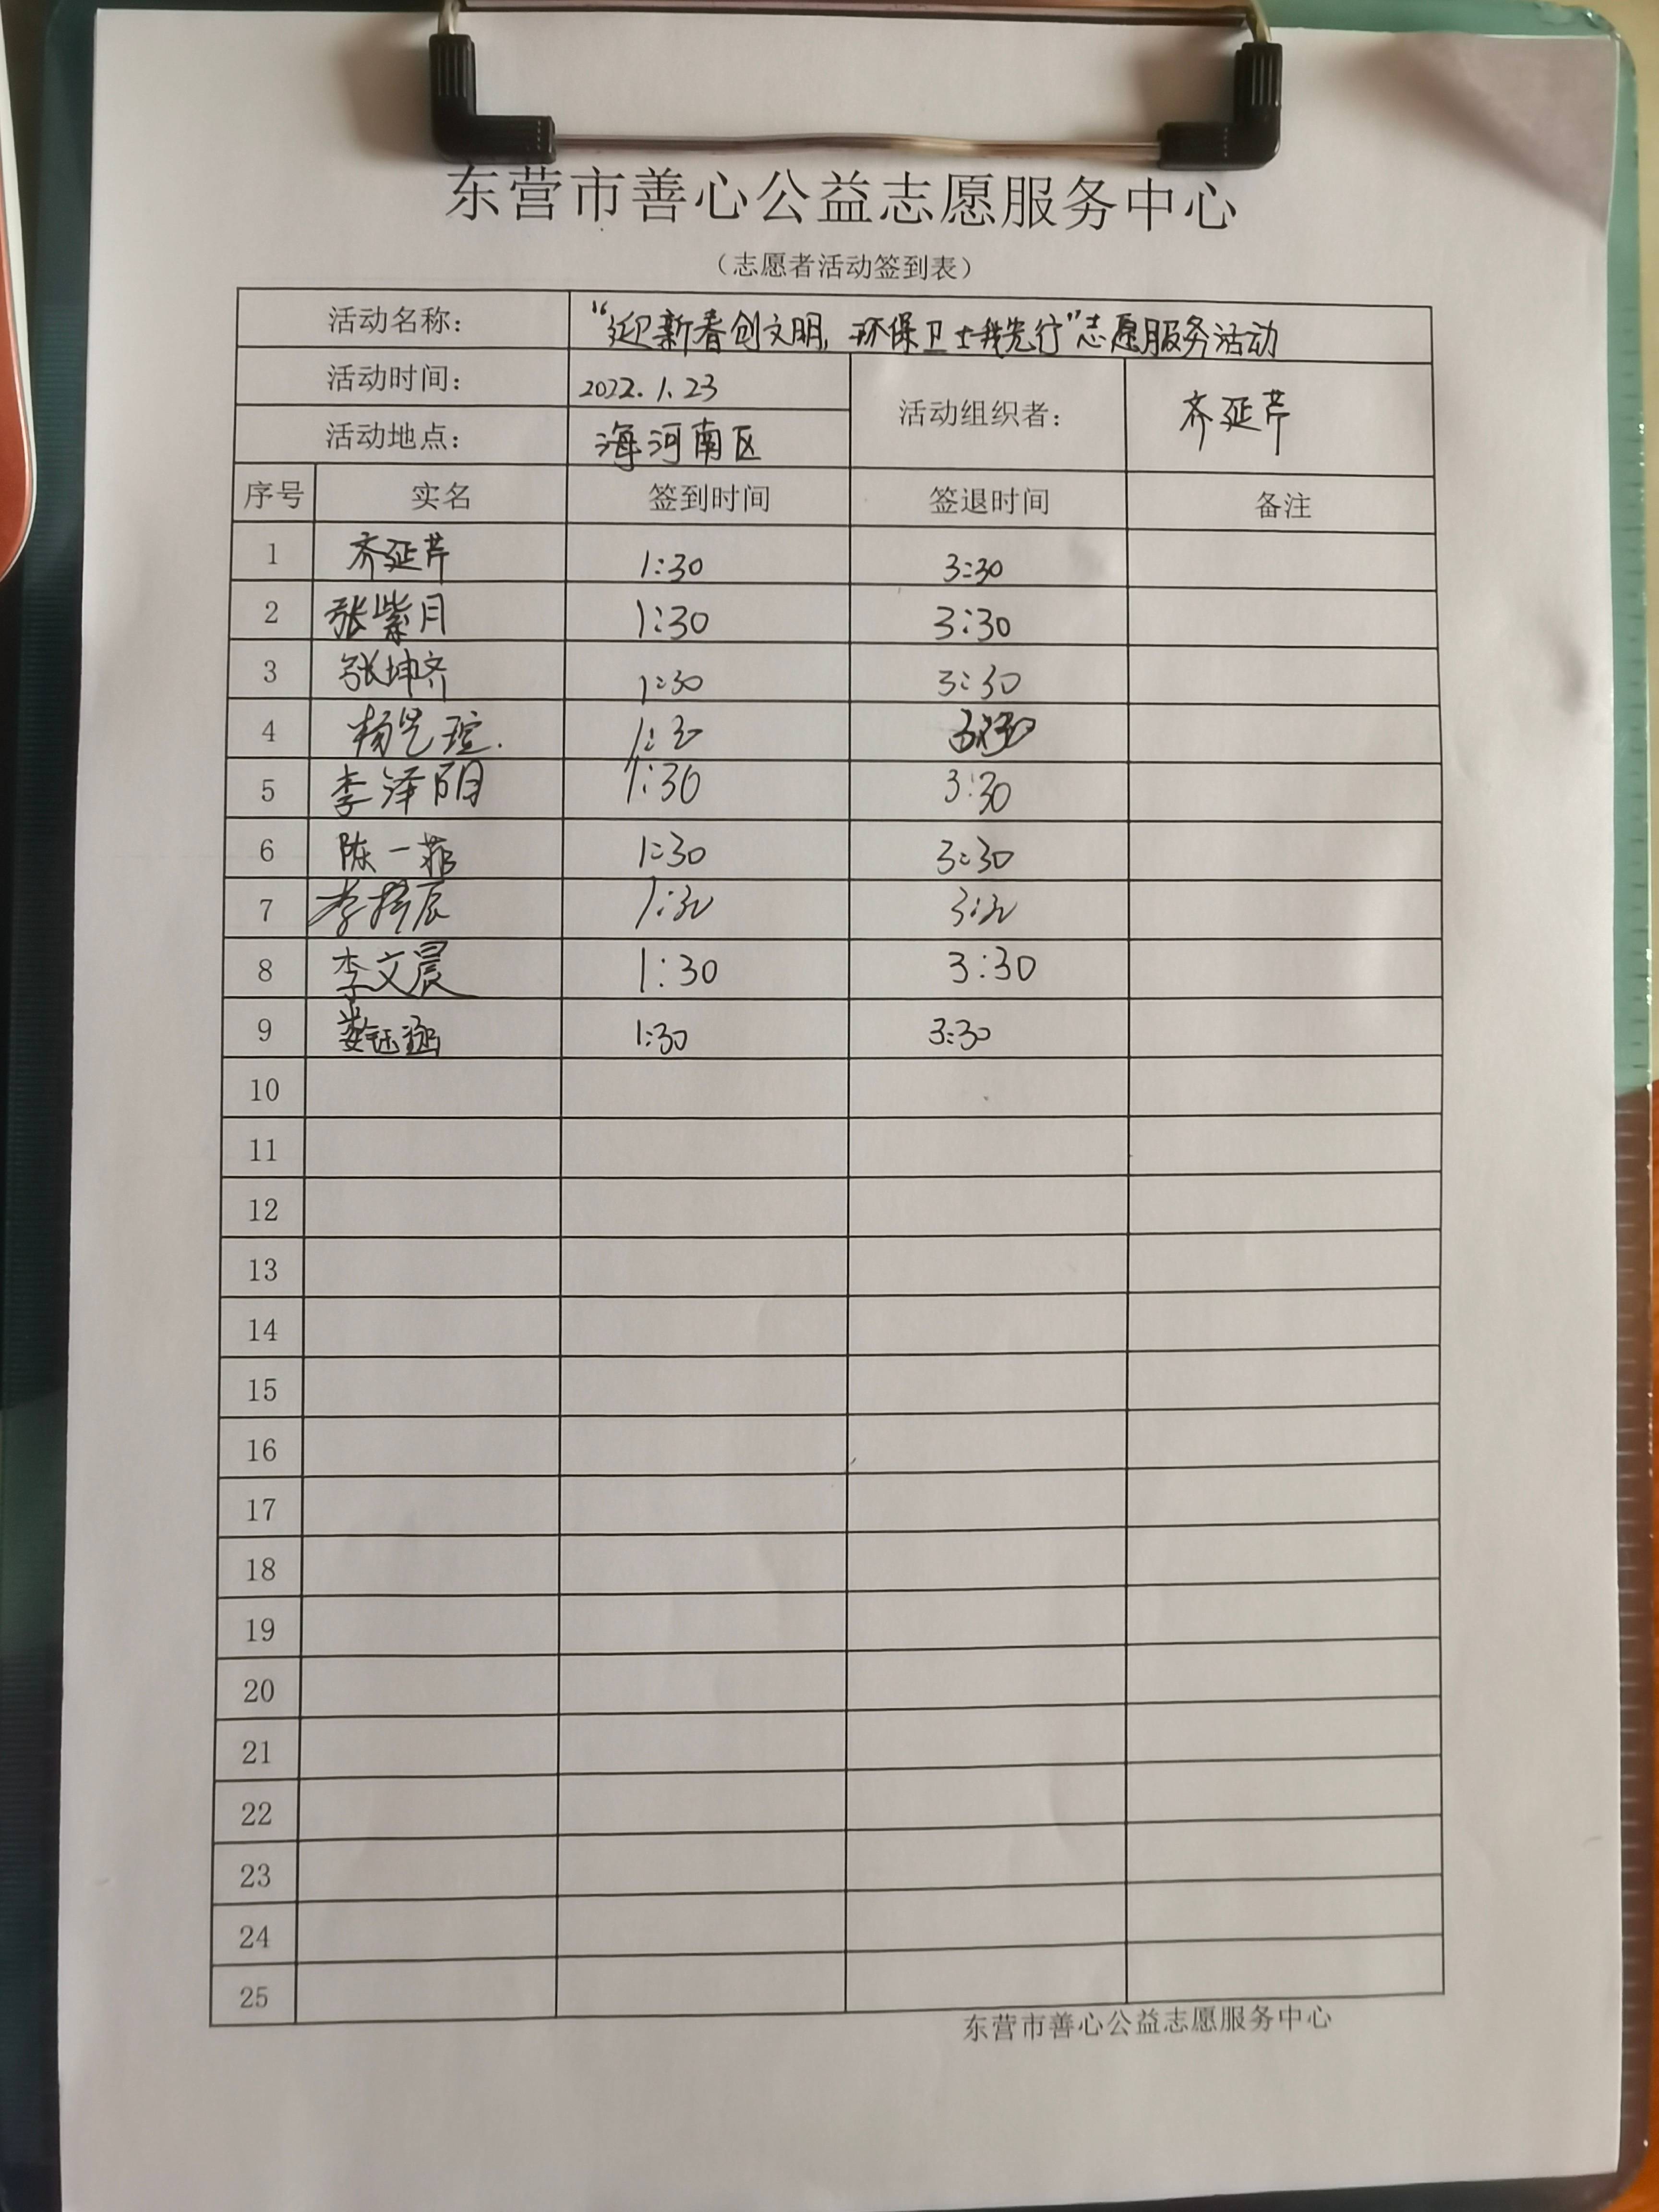 东营市善心公益志愿服务中心
（志愿者活动签到表）
活动名称： “迎新春创文明，环保卫士我先行”志愿服务活动
活动时间： 2022.1.23 活动组织者： 齐延芹
活动地点： 海河南区
序号 实名 签到时间 签退时间 备注
1 齐延芹 1:30 3:30
2 张紫月 1:30 3:30
3 张坤齐 1:30 3:30
4 1:30 3:30
5 李泽明 1:30 3:30
6 陈一菲 1:30 3:30
7 1:30 3:30
8 李文晨 1:30 3:30
9 娄钰涵 1:30 3:30
10
11
12
13
14
15
16
17
18
19
20
21
22
23
24
25
东营市善心公益志愿服务中心